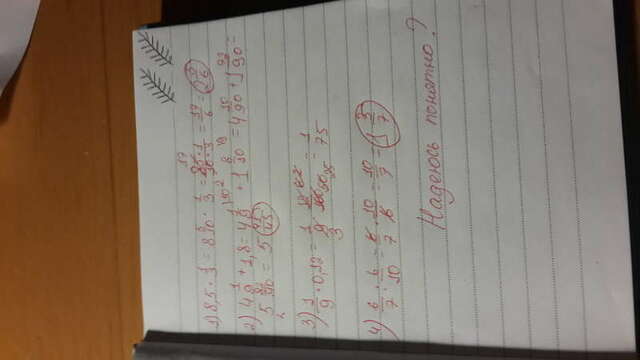 1) 8,5 · 1/3 = 8 5/10 · 1/3 = 85·1/10·3 = 17/6 = 2 5/6
2) 4 1/9 + 1,8 = 4 1/9 + 1 8/10 = 4 10/90 + 1 72/90 =
5 82/90 = 5 41/45
3) 1/9 · 0,12 = 1/9 · 12/100 = 1/75
4) 6/7 : 6/10 = 6/7 · 10/6 = 10/7 = 1 3/7
Надеюсь понятно?